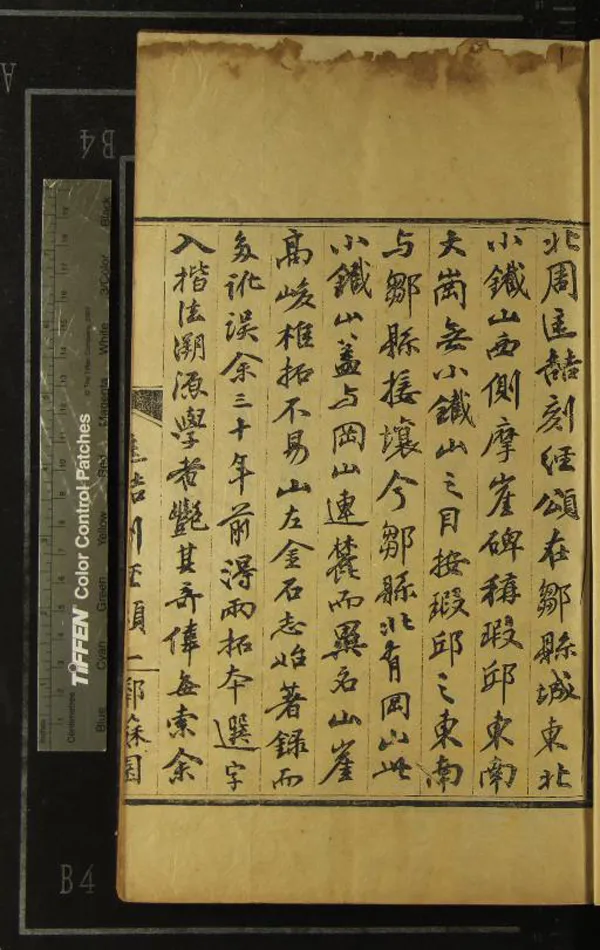 北周匡喆刻經頌在鄒縣城東北
小鐵山西側摩崖碑稱瑕邱東南
大崗無小鐵山之目按瑕邱之東南
与鄒縣接壤今鄒縣北有岡山此
小鐵山蓋与岡山連麓而異名山崖
高峻椎拓不易山左金石志始著錄而
多訛誤余三十年前得兩拓本選字
入楷法溯源學者艷其奇偉每索余
匡喆刻經頌 一 鄰蘇園
TIFFEN Color Control Patches
© The Tiffen Company, 2007
Blue
Cyan
Green
Yellow
Red
Magenta
White
3/Color
Black
Inches
Centimetres
A
B4
B4